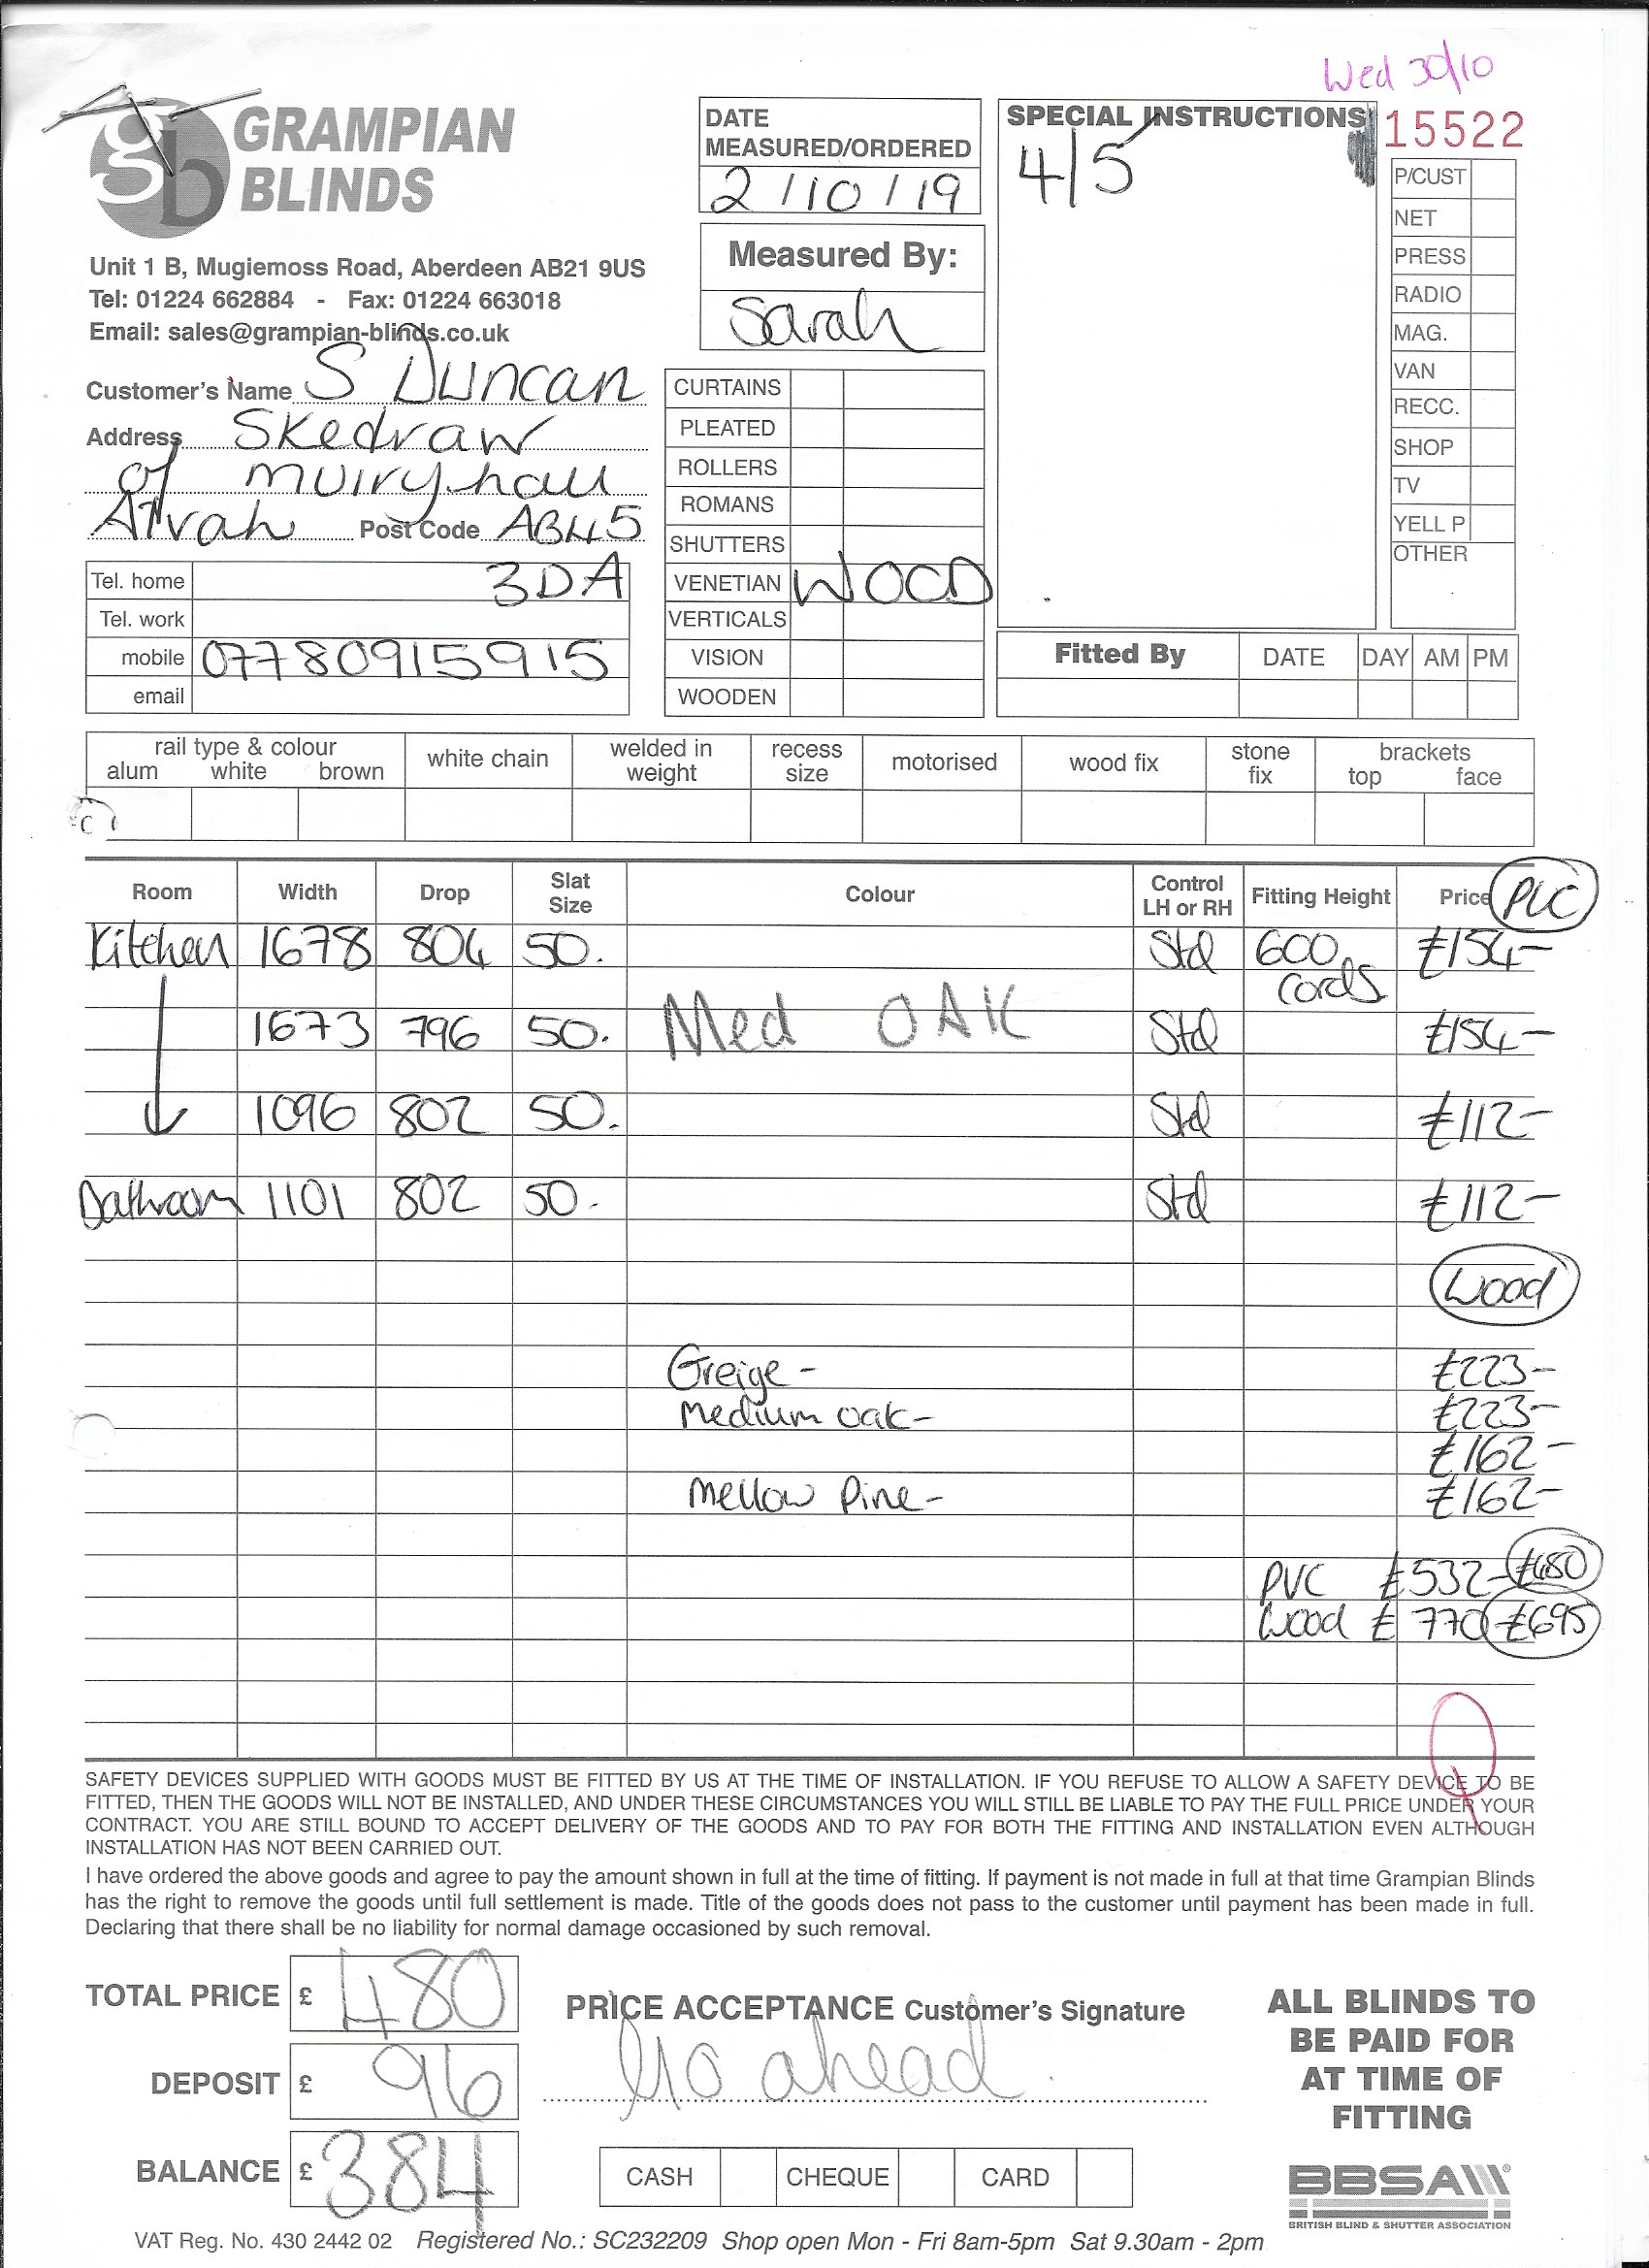 Wed 30/10
GRAMPIAN
BLINDS
Unit 1 B, Mugiemoss Road, Aberdeen AB21 9US
Tel: 01224 662884 - Fax: 01224 663018
Email: sales@grampian-blinds.co.uk
DATE
MEASURED/ORDERED
2/10/19
Measured By:
Sarah
SPECIAL INSTRUCTIONS
4/5
15522
P/CUST
NET
PRESS
RADIO
MAG.
VAN
RECC.
SHOP
TV
YELL P
OTHER
Customer's Name S Duncan
Address Skedraw
of muiryhall
Alvah Post Code AB45
3DA
Tel. home
Tel. work
mobile 07780915915
email
CURTAINS
PLEATED
ROLLERS
ROMANS
SHUTTERS
VENETIAN WOOD
VERTICALS
VISION
WOODEN
Fitted By DATE DAY AM PM
rail type & colour
alum white brown
white chain
welded in weight
recess size
motorised
wood fix
stone fix
brackets
top face
Room Width Drop Slat Size Colour Control LH or RH Fitting Height Price PVC
Kitchen 1678 804 50. Std 600 cords £154-
1673 796 50. Med OAK Std £154-
1096 802 50. Std £112-
Bathroom 1101 802 50. Std £112-
Wood
Greige- £223-
Medium oak- £223-
£162-
Mellow Pine- £162-
PVC £532- £480
Wood £ 770 £695
SAFETY DEVICES SUPPLIED WITH GOODS MUST BE FITTED BY US AT THE TIME OF INSTALLATION. IF YOU REFUSE TO ALLOW A SAFETY DEVICE TO BE
FITTED, THEN THE GOODS WILL NOT BE INSTALLED, AND UNDER THESE CIRCUMSTANCES YOU WILL STILL BE LIABLE TO PAY THE FULL PRICE UNDER YOUR
CONTRACT. YOU ARE STILL BOUND TO ACCEPT DELIVERY OF THE GOODS AND TO PAY FOR BOTH THE FITTING AND INSTALLATION EVEN ALTHOUGH
INSTALLATION HAS NOT BEEN CARRIED OUT.
I have ordered the above goods and agree to pay the amount shown in full at the time of fitting. If payment is not made in full at that time Grampian Blinds
has the right to remove the goods until full settlement is made. Title of the goods does not pass to the customer until payment has been made in full.
Declaring that there shall be no liability for normal damage occasioned by such removal.
TOTAL PRICE £ 480
DEPOSIT £ 96
BALANCE £ 384
PRICE ACCEPTANCE Customer's Signature
Go ahead
CASH CHEQUE CARD
ALL BLINDS TO
BE PAID FOR
AT TIME OF
FITTING
BBSA
BRITISH BLIND & SHUTTER ASSOCIATION
VAT Reg. No. 430 2442 02 Registered No.: SC232209 Shop open Mon - Fri 8am-5pm Sat 9.30am - 2pm